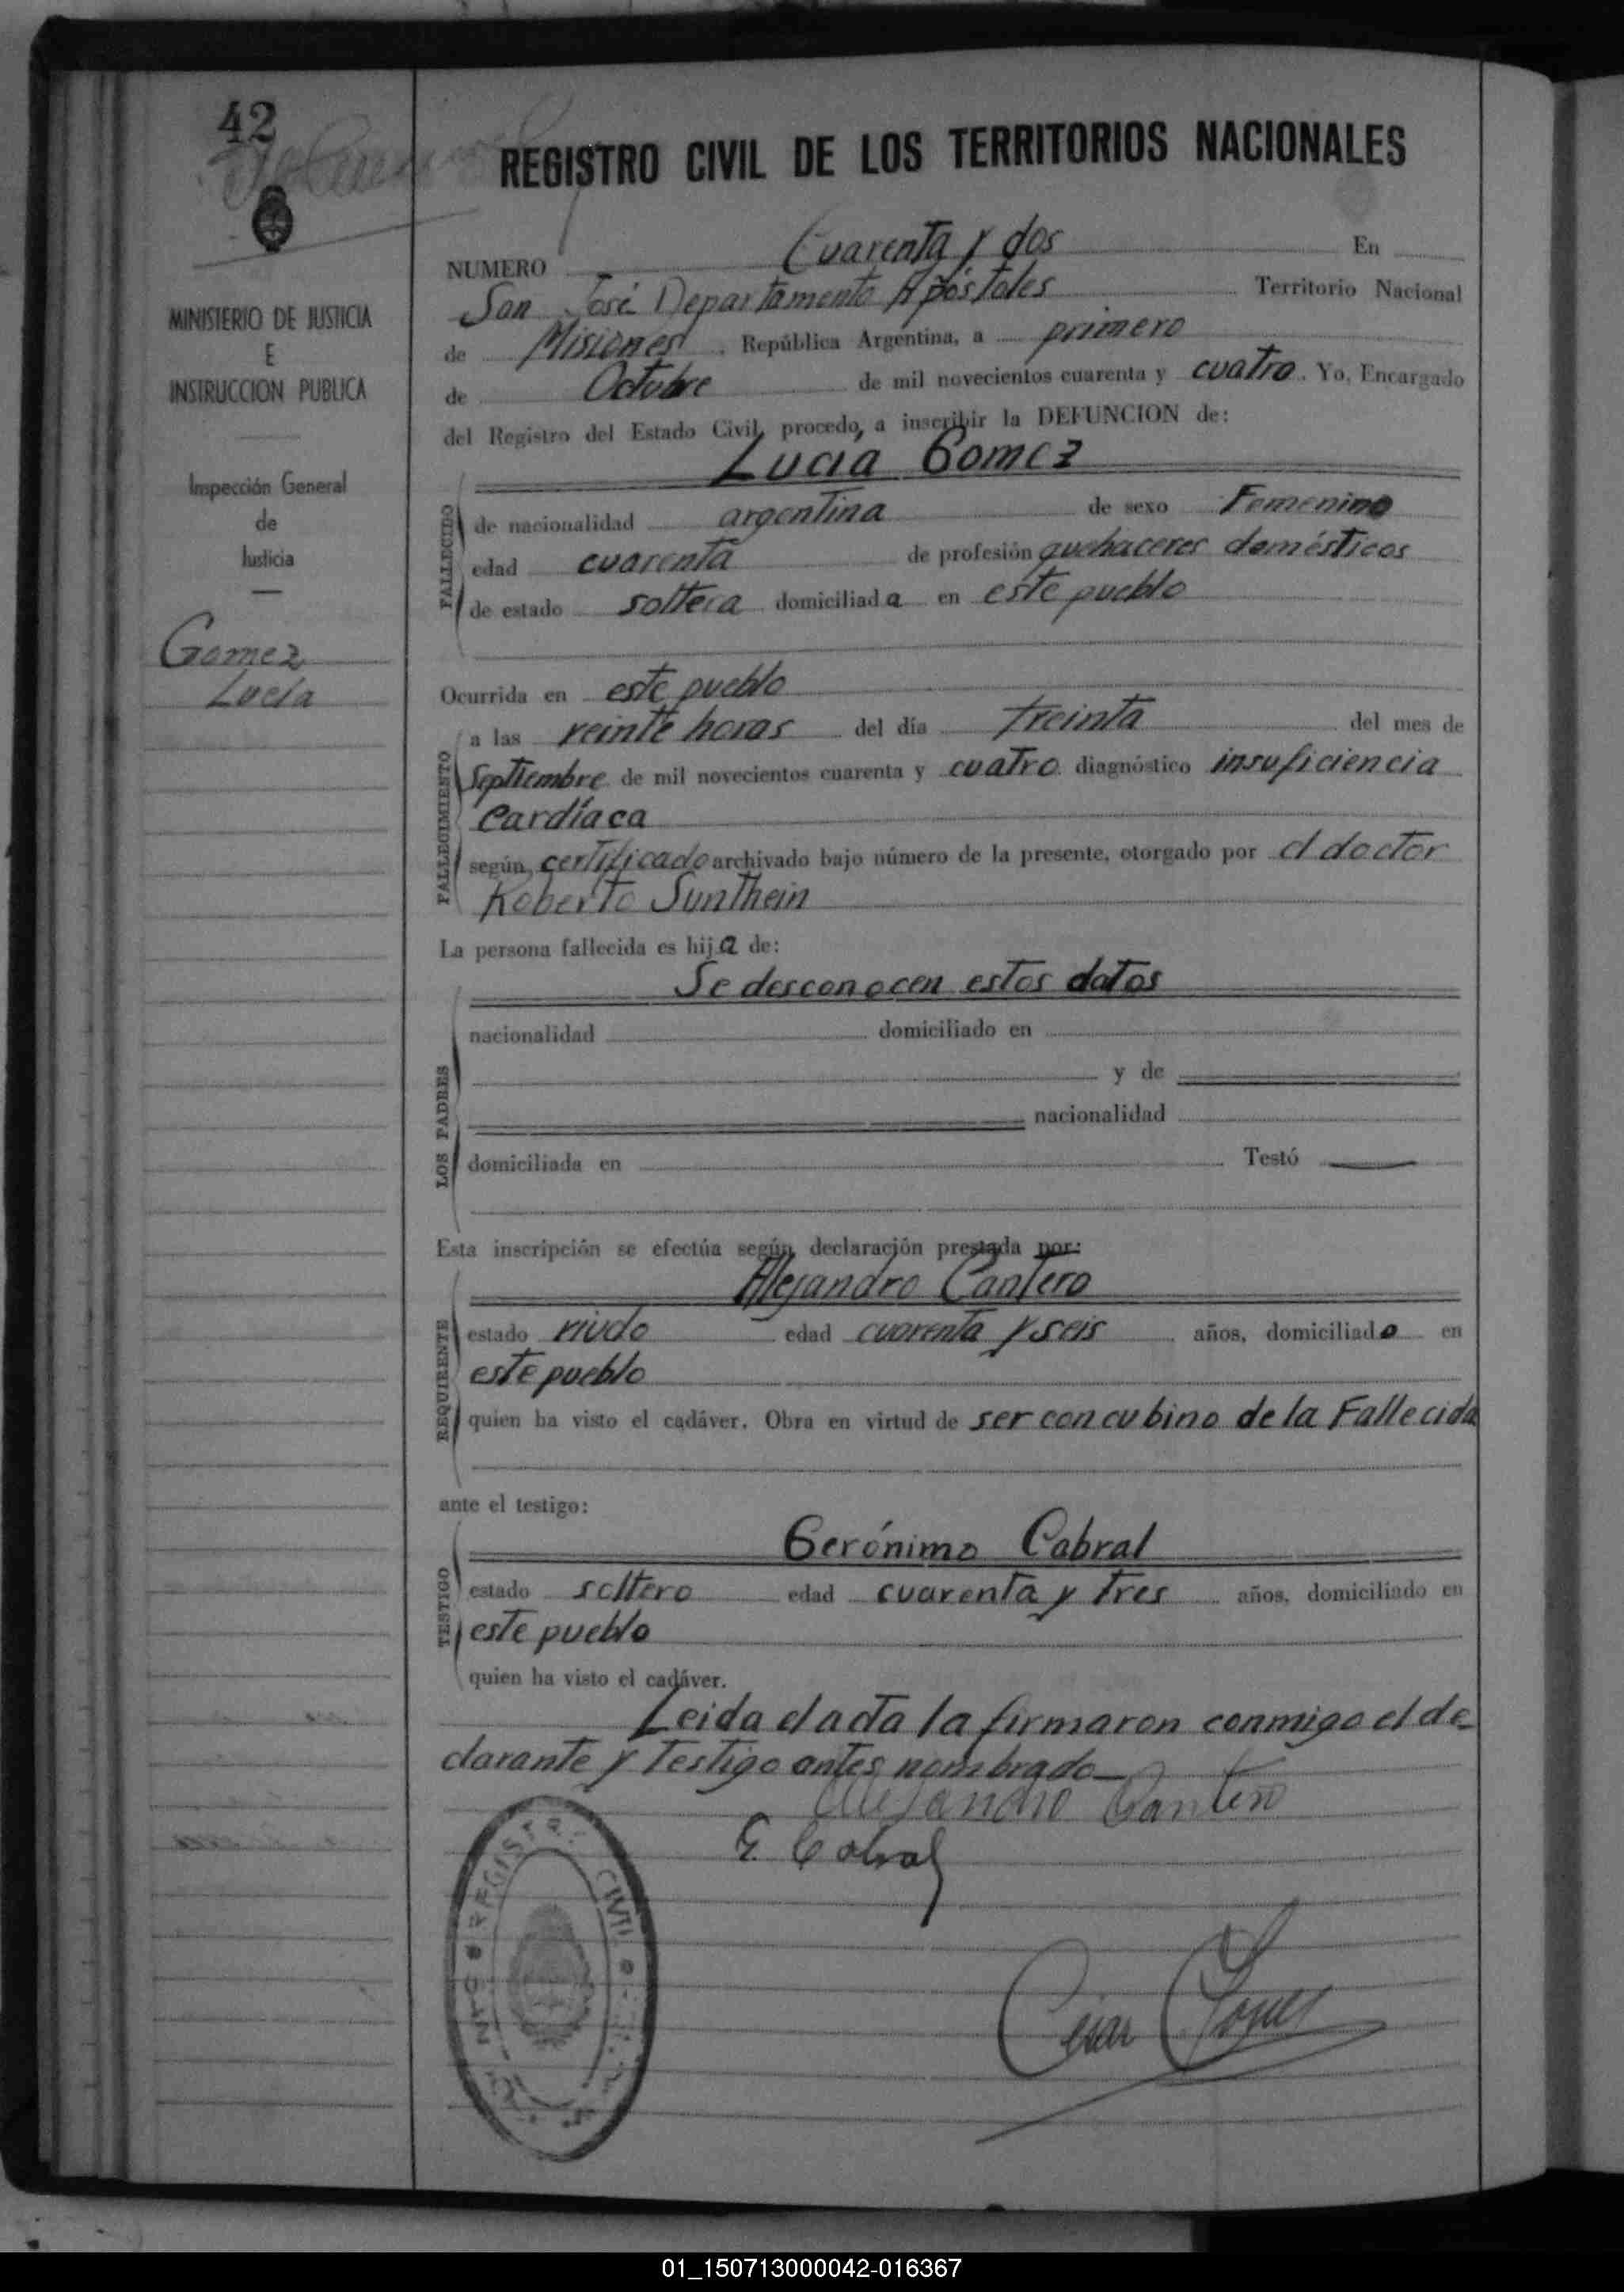 42
REGISTRO CIVIL DE LOS TERRITORIOS NACIONALES
MINISTERIO DE JUSTICIA
E
INSTRUCCION PUBLICA
Inspección General
de
Justicia
Gomez
Lucia
NUMERO Cuarenta y dos En
San José Departamento Apóstoles Territorio Nacional
de Misiones, República Argentina, a primero
de Octubre de mil novecientos cuarenta y cuatro. Yo, Encargado
del Registro del Estado Civil, procedo, a inscribir la DEFUNCION de:
Lucia Gomez
FALLECIDO
de nacionalidad argentina de sexo Femenino
edad cuarenta de profesión quehaceres domésticos
de estado soltera domiciliada en este pueblo
Ocurrida en este pueblo
FALLECIMIENTO
a las veinte horas del día treinta del mes de
Septiembre de mil novecientos cuarenta y cuatro diagnóstico insuficiencia
Cardíaca
según, certificado archivado bajo número de la presente, otorgado por el doctor
Roberto Sunthein
La persona fallecida es hija de:
Se desconocen estos datos
LOS PADRES
nacionalidad domiciliado en
y de
nacionalidad
domiciliada en Testó
Esta inscripción se efectúa según declaración prestada por:
Alejandro Cantero
REQUIRENTE
estado viudo edad cuarenta y seis años, domiciliado en
este pueblo
quien ha visto el cadáver. Obra en virtud de ser concubino de la Fallecida
ante el testigo:
Gerónimo Cabral
TESTIGO
estado soltero edad cuarenta y tres años, domiciliado en
este pueblo
quien ha visto el cadáver.
Leida el acta la firmaron conmigo el de-
clarante y testigo antes nombrado
Alejandro Cantero
G. Cabral
REGISTRO CIVIL
César
01_150713000042-016367